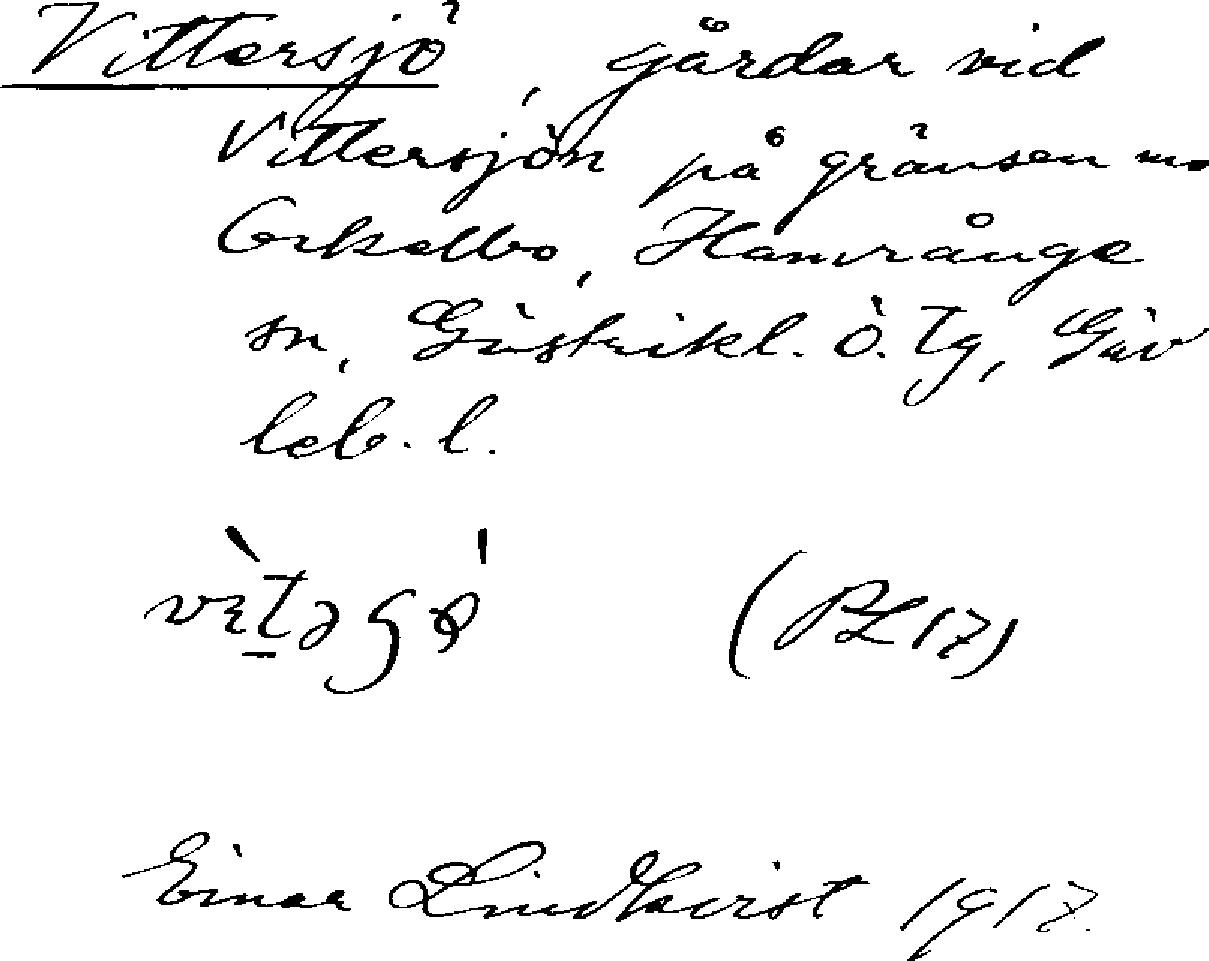 Vittersjö, gårdar vid
Vittersjön på gränsen mo
Ockelbo, Hamrånge
sn, Gästrikl. ö. tg, Gäv
leb. l.
(PL 17)
Einar Lindkvist 1917.